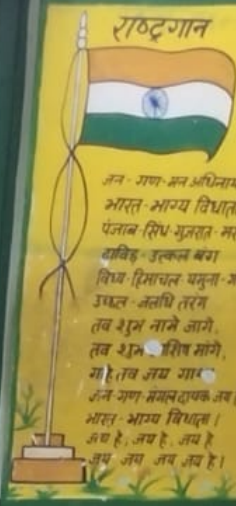 राष्ट्रगान
जन-गण-मन अधिनाय
भारत-भाग्य विधाता
पंजाब-सिंध-गुजरात-मरा
द्राविड़-उत्कल बंग
विंध्य-हिमाचल-यमुना-गं
उच्छल-जलधि तरंग
तव शुभ नामे जागे,
तव शुभ शिष मांगे,
गाहे तव जय गाथा
जन गण-मंगल दायक जय
भारत-भाग्य विधाता।
जय हे, जय हे, जय हे
जय जय जय जय हे।